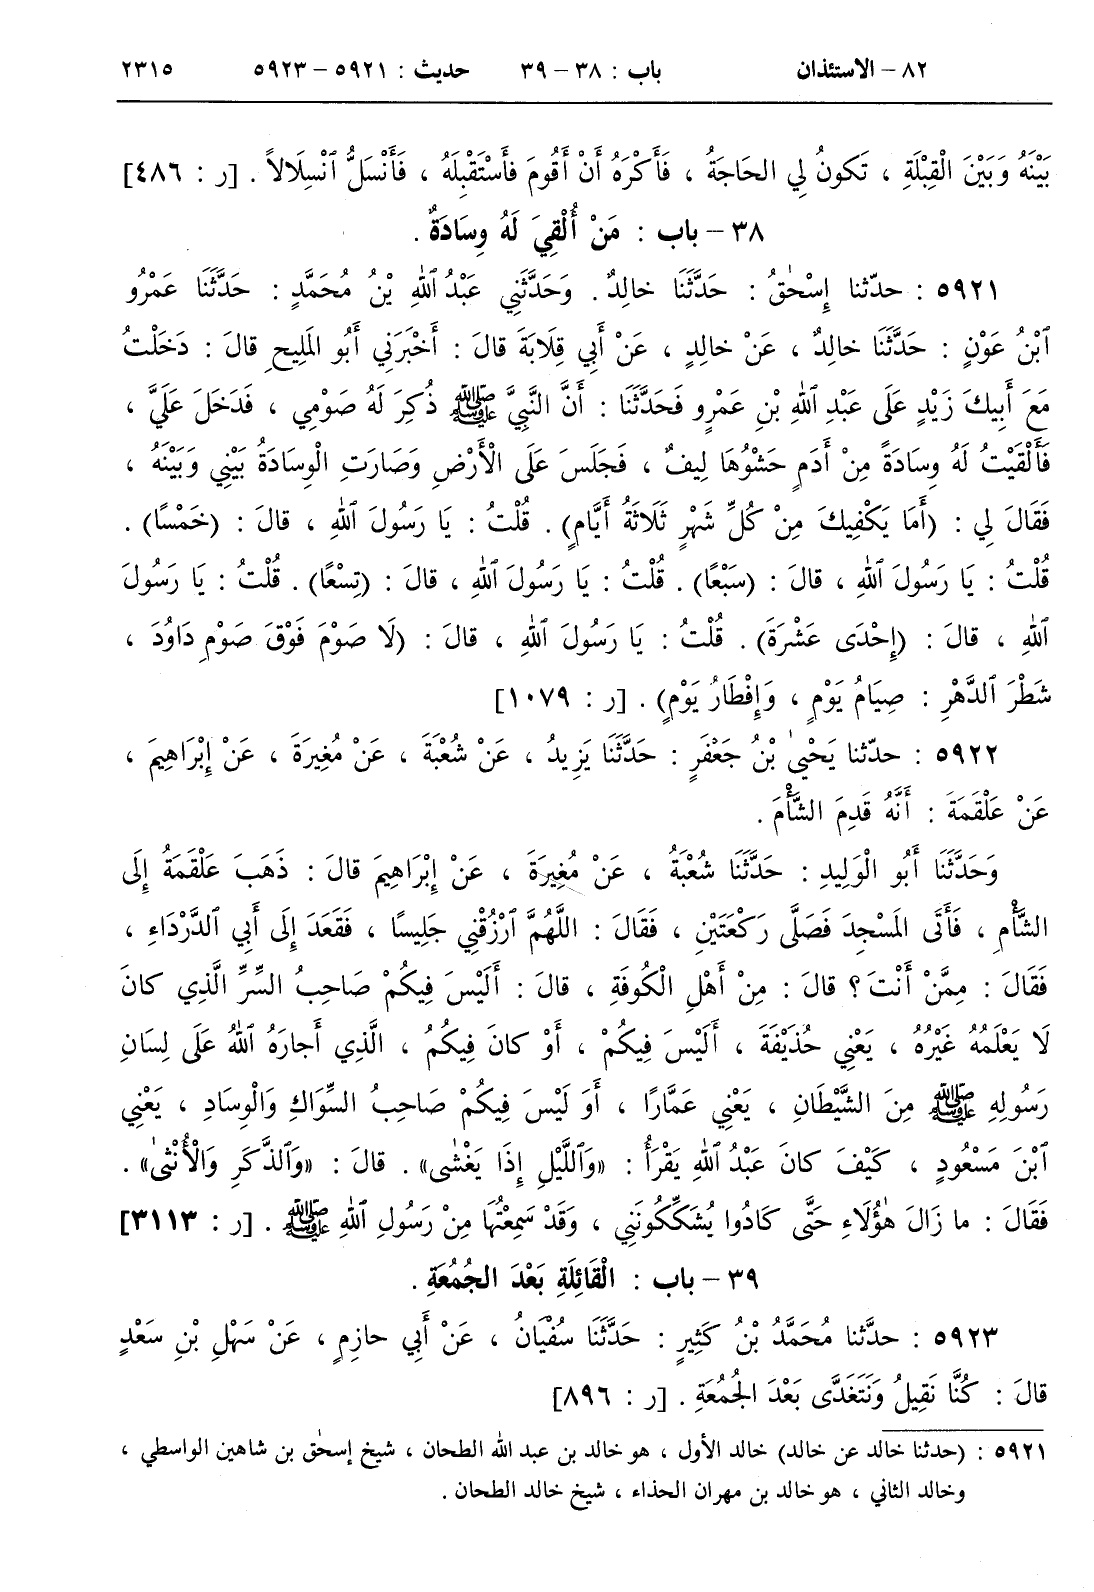 ٨٢ – الاستئذان باب : ٣٨ – ٣٩ حديث : ٥٩٢١ – ٥٩٢٣ ٢٣١٥
بَيْنَهُ وَبَيْنَ الْقِبْلَةِ ، تَكونُ لِي الحَاجَةُ ، فَأَكْرَهُ أَنْ أَقُومَ فَأَسْتَقْبِلَهُ ، فَأَنْسَلُّ ٱنْسِلَالاً . [ر : ٤٨٦]
٣٨ – باب : مَنْ أُلْقِيَ لَهُ وِسَادَةٌ .
٥٩٢١ : حدّثنا إِسْحٰقُ : حَدَّثَنَا خالِدٌ . وَحَدَّثَنِي عَبْدُ ٱللهِ بْنُ مُحَمَّدٍ : حَدَّثَنَا عَمْرُو
ٱبْنُ عَوْنٍ : حَدَّثَنَا خالِدٌ ، عَنْ خالِدٍ ، عَنْ أَبِي قِلَابَةَ قالَ : أَخْبَرَنِي أَبُو المَلِيحِ قالَ : دَخَلْتُ
مَعَ أَبِيكَ زَيْدٍ عَلَى عَبْدِ ٱللهِ بْنِ عَمْرٍو فَحَدَّثَنَا : أَنَّ النَّبِيَّ ﷺ ذُكِرَ لَهُ صَوْمِي ، فَدَخَلَ عَلَيَّ ،
فَأَلْقَيْتُ لَهُ وِسَادَةً مِنْ أَدَمٍ حَشْوُهَا لِيفٌ ، فَجَلَسَ عَلَى الْأَرْضِ وَصَارَتِ الْوِسَادَةُ بَيْنِي وَبَيْنَهُ ،
فَقَالَ لِي : (أَمَا يَكْفِيكَ مِنْ كُلِّ شَهْرٍ ثَلَاثَةُ أَيَّامٍ) . قُلْتُ : يَا رَسُولَ ٱللهِ ، قالَ : (خَمْسًا) .
قُلْتُ : يَا رَسُولَ ٱللهِ ، قالَ : (سَبْعًا) . قُلْتُ : يَا رَسُولَ ٱللهِ ، قالَ : (تِسْعًا) . قُلْتُ : يَا رَسُولَ
ٱللهِ ، قالَ : (إِحْدَى عَشْرَةَ) . قُلْتُ : يَا رَسُولَ ٱللهِ ، قالَ : (لَا صَوْمَ فَوْقَ صَوْمِ دَاوُدَ ،
شَطْرَ ٱلدَّهْرِ : صِيَامُ يَوْمٍ ، وَإِفْطَارُ يَوْمٍ) . [ر : ١٠٧٩]
٥٩٢٢ : حدّثنا يَحْيىٰ بْنُ جَعْفَرٍ : حَدَّثَنَا يَزِيدُ ، عَنْ شُعْبَةَ ، عَنْ مُغِيرَةَ ، عَنْ إِبْرَاهِيمَ ،
عَنْ عَلْقَمَةَ : أَنَّهُ قَدِمَ الشَّأْمَ .
وَحَدَّثَنَا أَبُو الْوَلِيدِ : حَدَّثَنَا شُعْبَةُ ، عَنْ مُغِيرَةَ ، عَنْ إِبْرَاهِيمَ قالَ : ذَهَبَ عَلْقَمَةُ إِلَى
الشَّأْمِ ، فَأَتَى المَسْجِدَ فَصَلَّى رَكْعَتَيْنِ ، فَقَالَ : اللَّهُمَّ ٱرْزُقْنِي جَلِيسًا ، فَقَعَدَ إِلَى أَبِي ٱلدَّرْدَاءِ ،
فَقَالَ : مِمَّنْ أَنْتَ؟ قالَ : مِنْ أَهْلِ الْكُوفَةِ ، قالَ : أَلَيْسَ فِيكُمْ صَاحِبُ السِّرِّ الَّذِي كانَ
لَا يَعْلَمُهُ غَيْرُهُ ، يَعْنِي حُذَيْفَةَ ، أَلَيْسَ فِيكُمْ ، أَوْ كانَ فِيكُمُ ، الَّذِي أَجارَهُ ٱللهُ عَلَى لِسَانِ
رَسُولِهِ ﷺ مِنَ الشَّيْطَانِ ، يَعْنِي عَمَّارًا ، أَوَ لَيْسَ فِيكُمْ صَاحِبُ السِّوَاكِ وَالْوِسَادِ ، يَعْنِي
ٱبْنَ مَسْعُودٍ ، كَيْفَ كانَ عَبْدُ ٱللهِ يَقْرَأُ : «وَٱللَّيْلِ إِذَا يَغْشٰى» . قالَ : «وَٱلذَّكَرِ وَالْأُنْثىٰ» .
فَقَالَ : ما زَالَ هٰؤُلَاءِ حَتَّى كَادُوا يُشَكِّكُونَنِي ، وَقَدْ سَمِعْتُهَا مِنْ رَسُولِ ٱللهِ ﷺ . [ر : ٣١١٣]
٣٩ – باب : الْقَائِلَةِ بَعْدَ الجُمُعَةِ .
٥٩٢٣ : حدّثنا مُحَمَّدُ بْنُ كَثِيرٍ : حَدَّثَنَا سُفْيَانُ ، عَنْ أَبِي حازِمٍ ، عَنْ سَهْلِ بْنِ سَعْدٍ
قالَ : كُنَّا نَقِيلُ وَنَتَغَدَّى بَعْدَ الجُمُعَةِ . [ر : ٨٩٦]
٥٩٢١ : (حدثنا خالد عن خالد) خالد الأول ، هو خالد بن عبد الله الطحان ، شيخ إسحٰق بن شاهين الواسطي ،
وخالد الثاني ، هو خالد بن مهران الحذاء ، شيخ خالد الطحان .